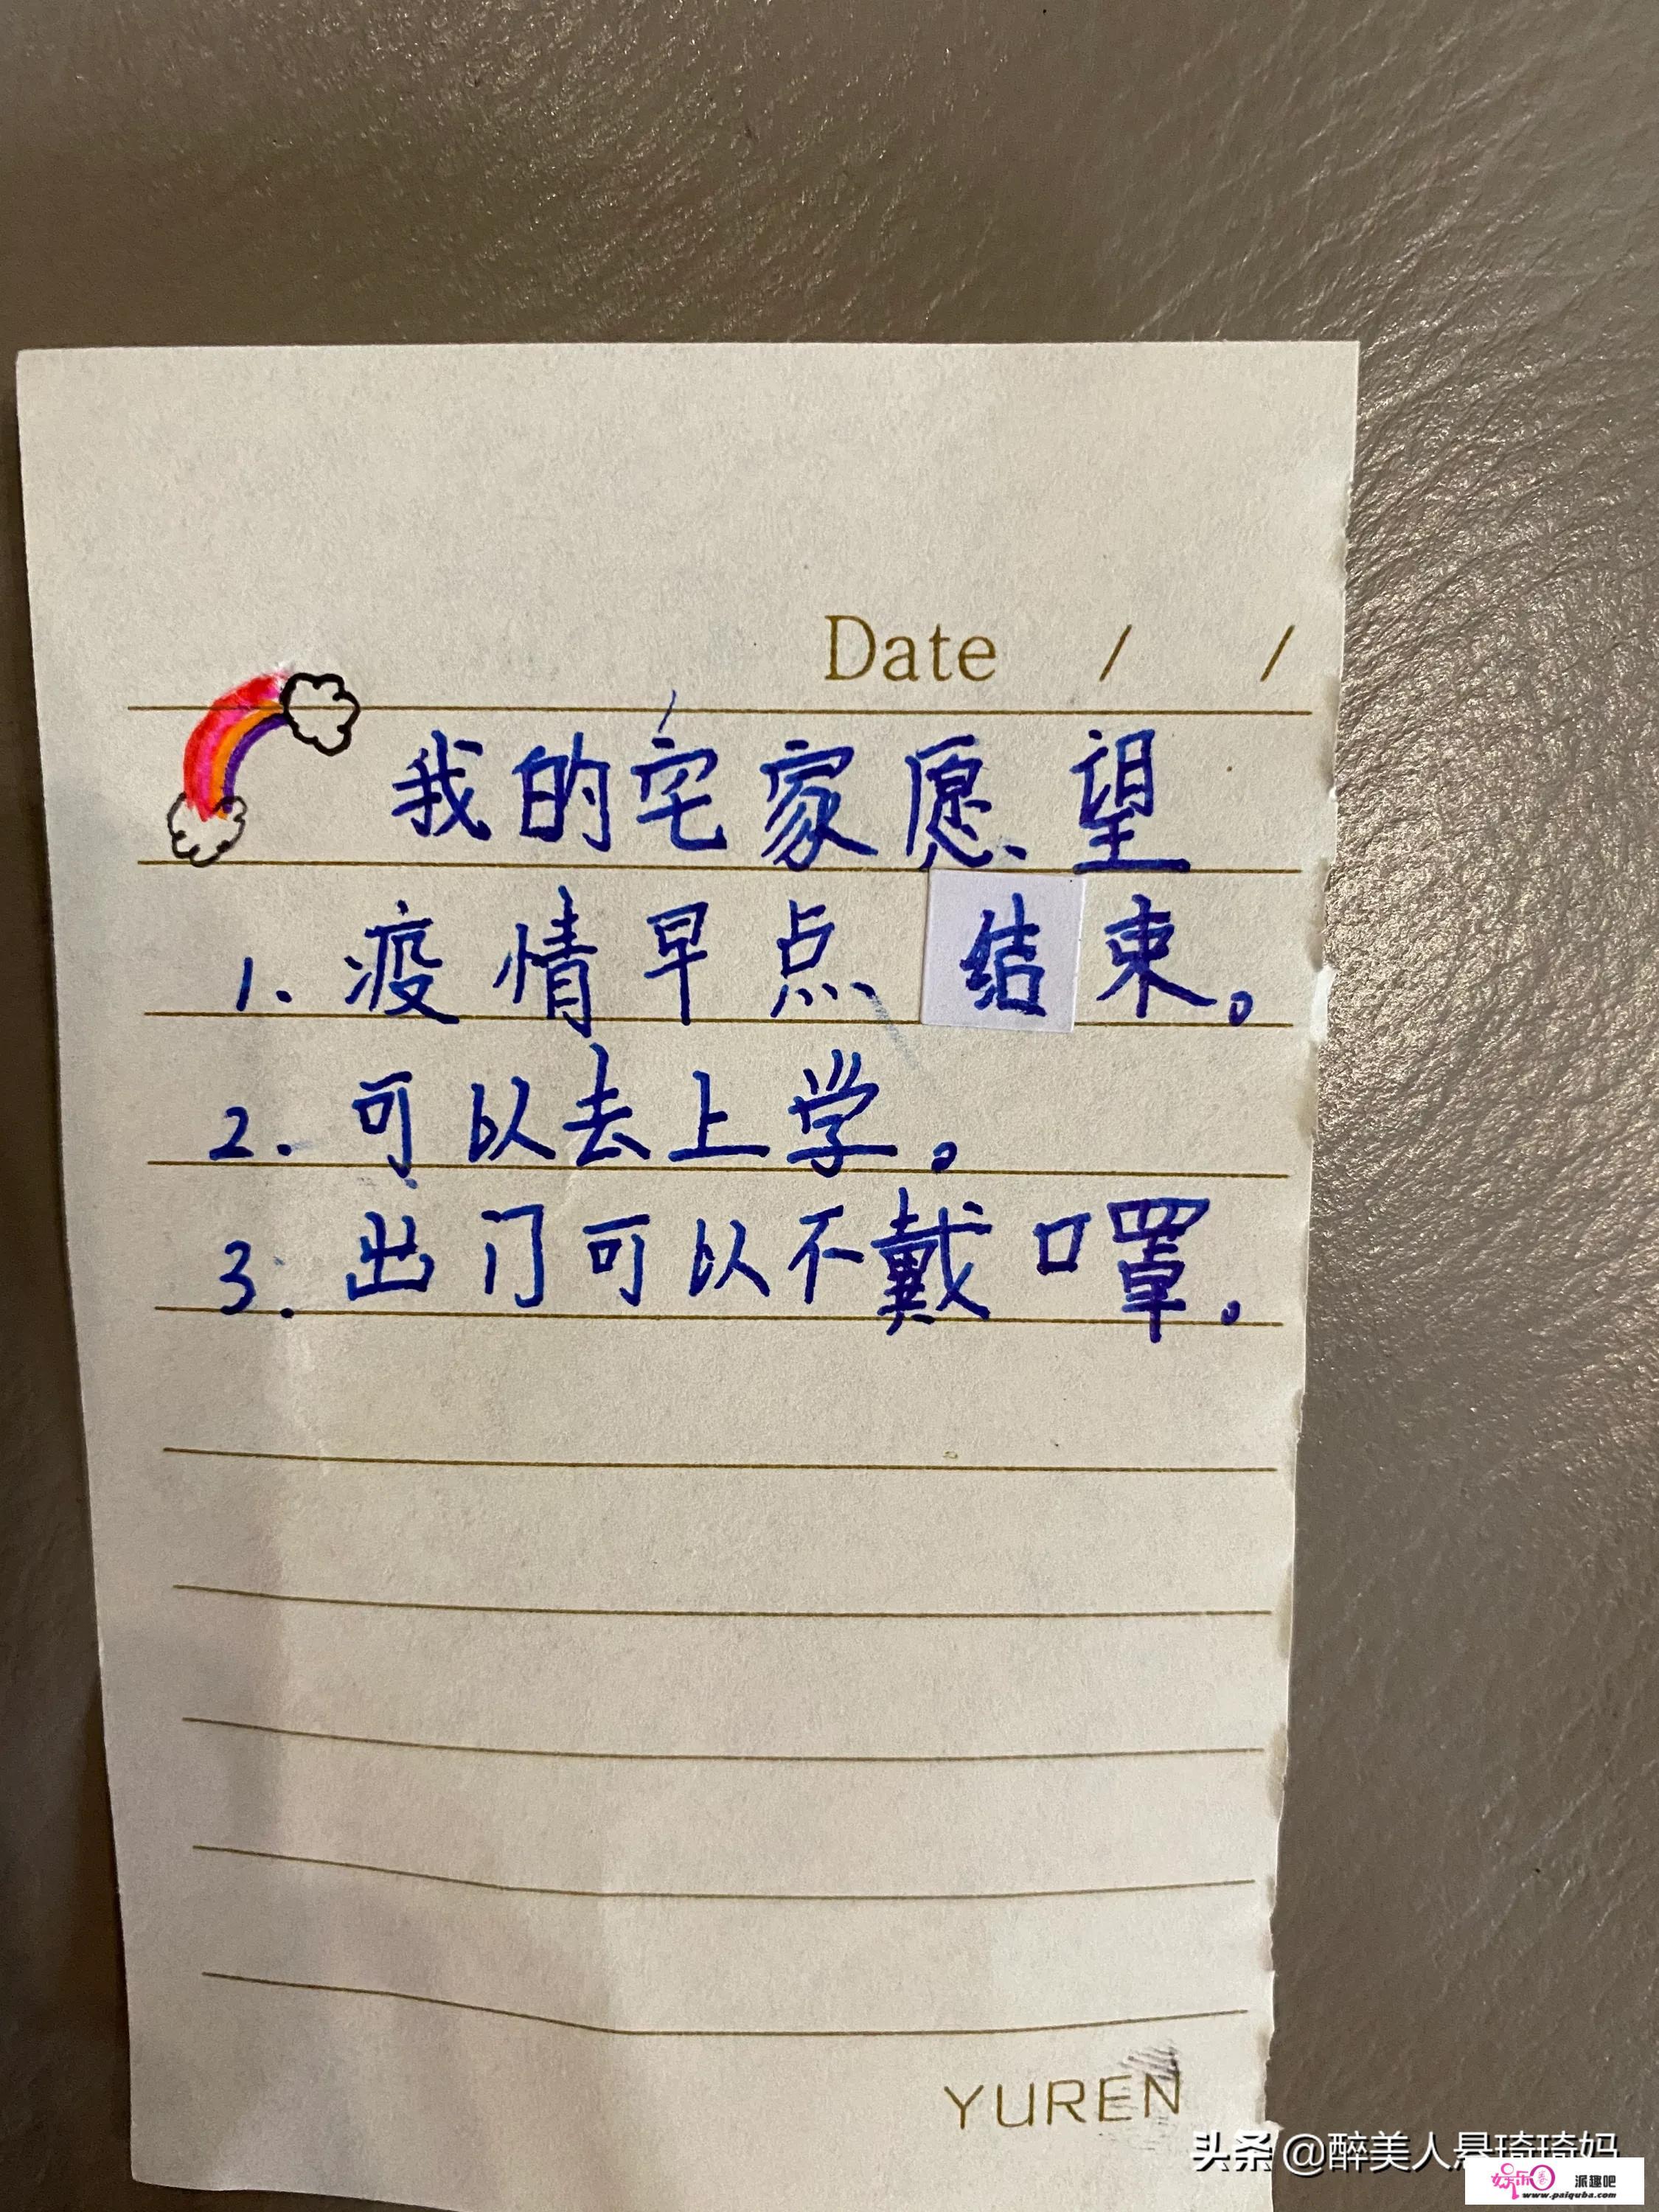 Date / /
我的宅家愿望
1. 疫情早点结束。
2. 可以去上学。
3. 出门可以不戴口罩。
YUREN
头条 @醉美人悬琦琦妈
派趣吧
www.paiquba.com